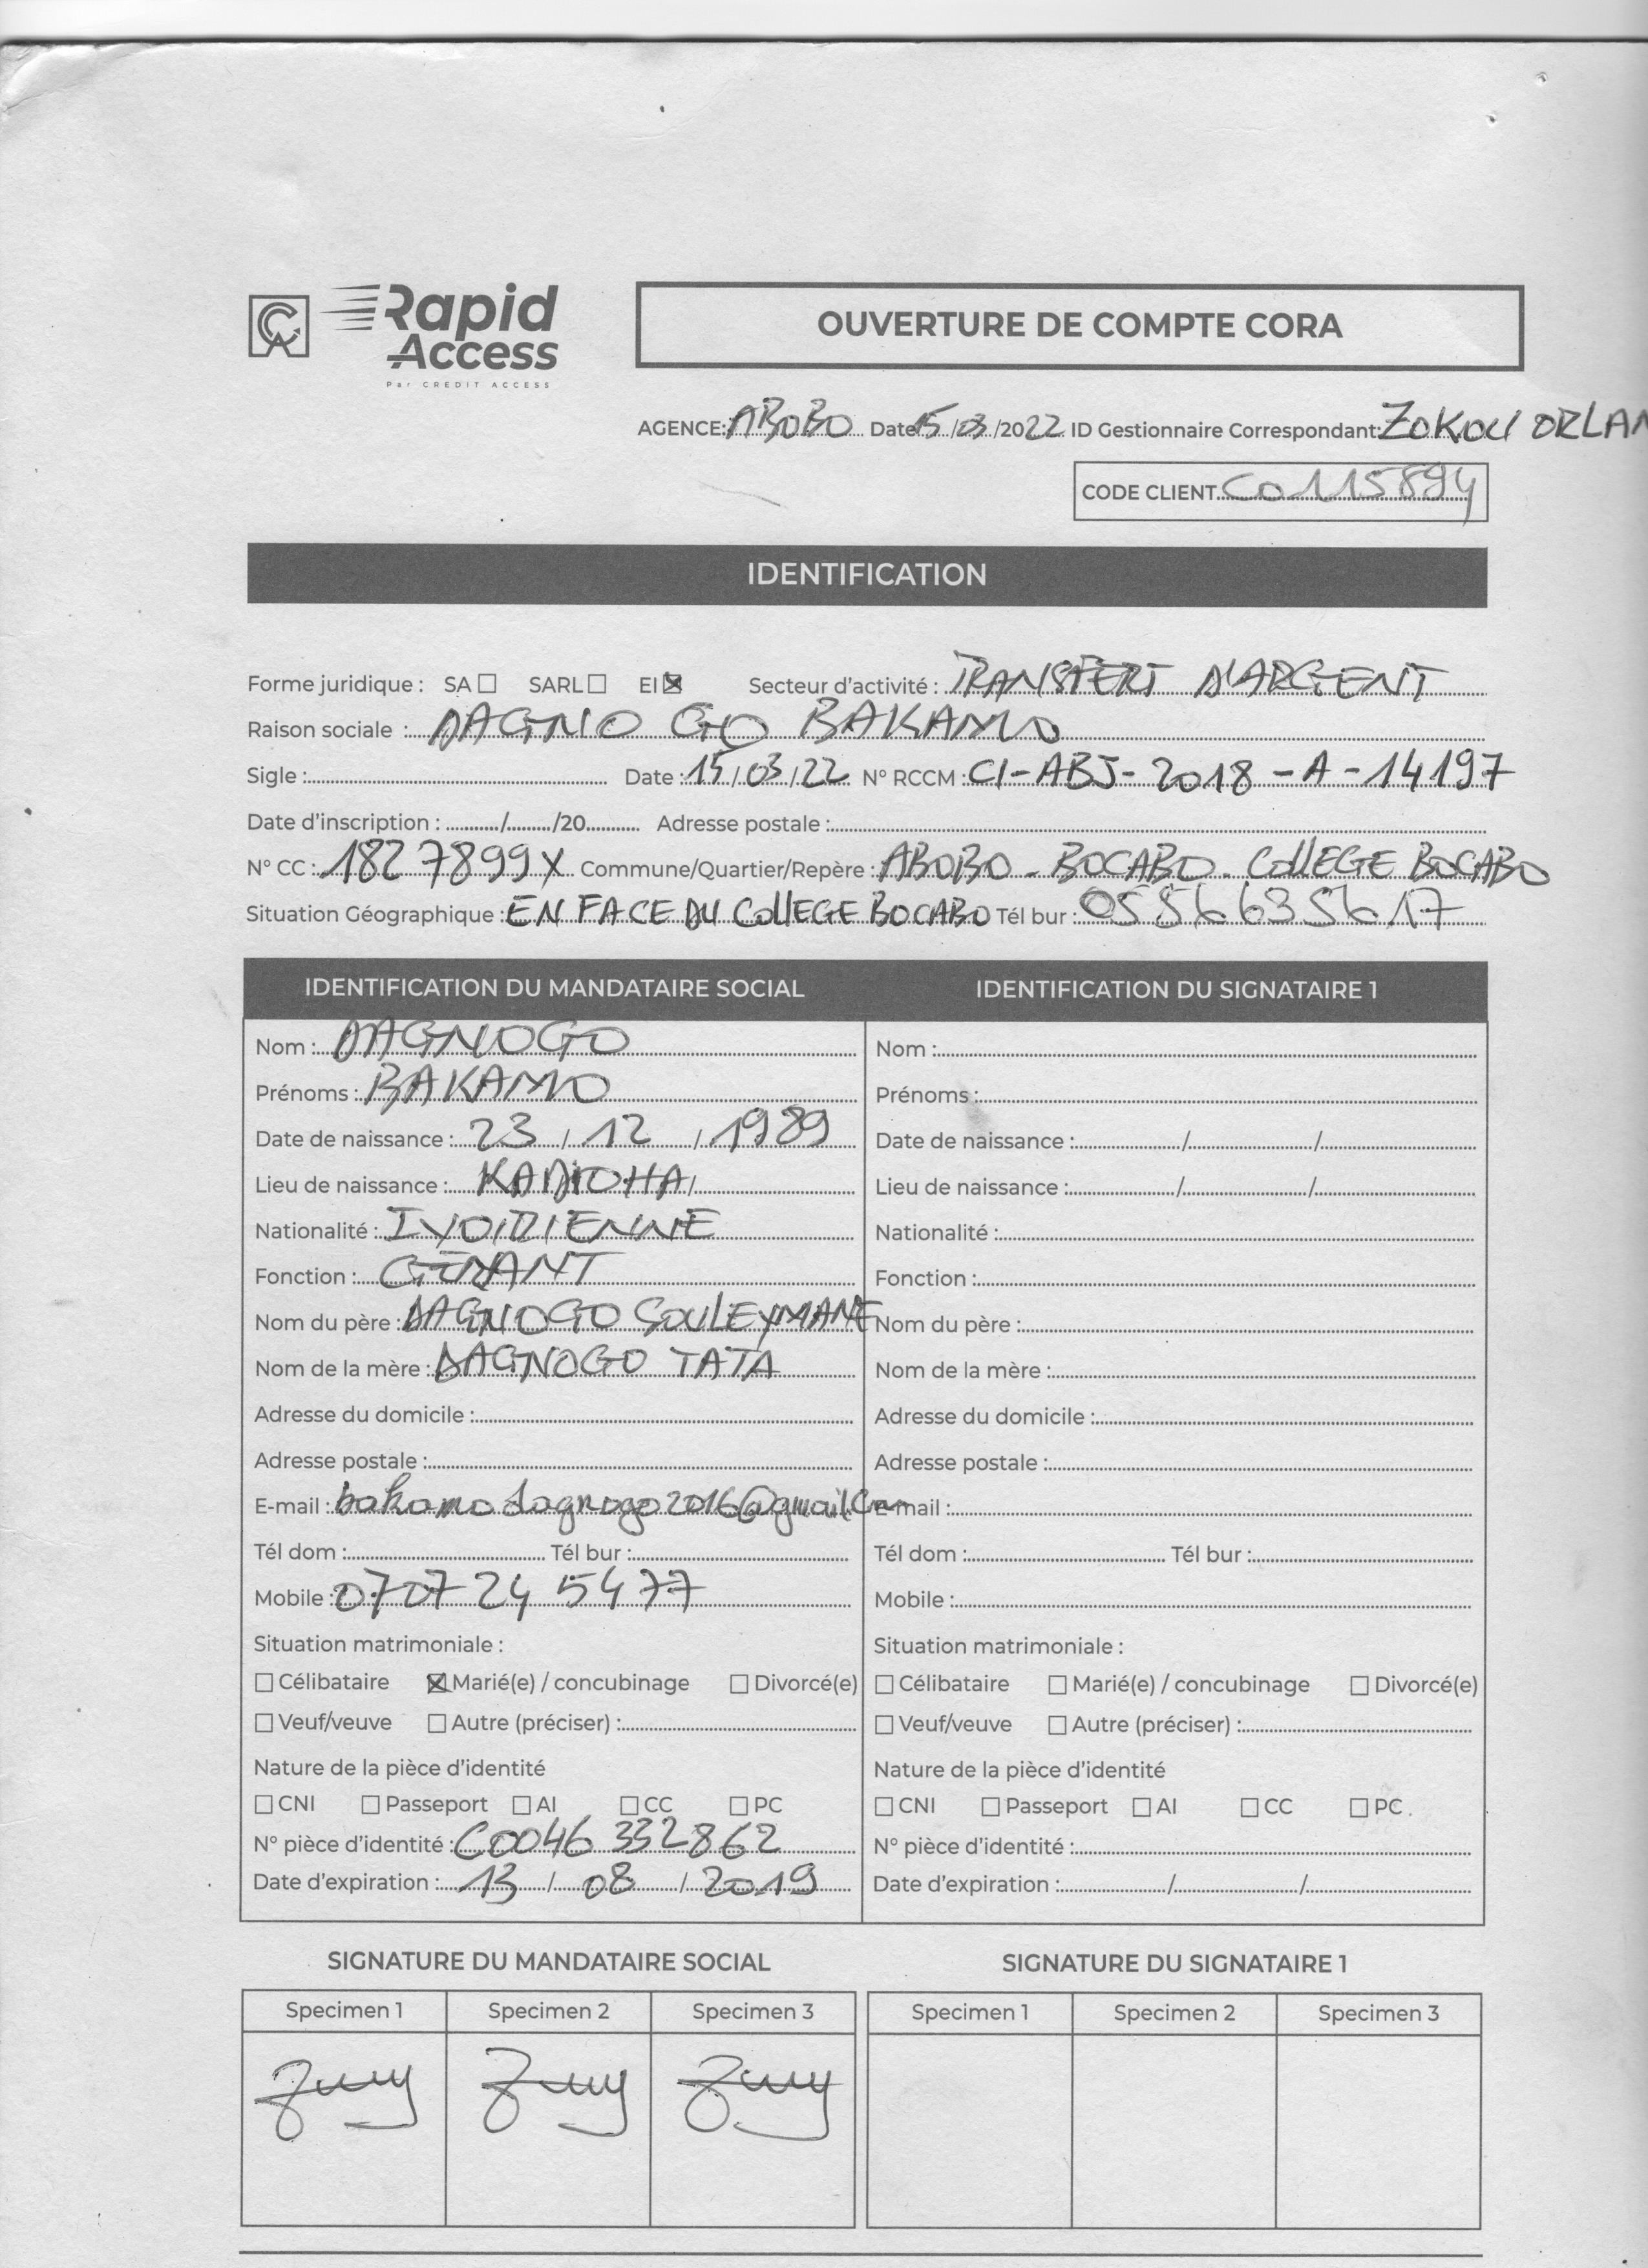 CA Rapid Access
Par CREDIT ACCESS
OUVERTURE DE COMPTE CORA
AGENCE: ABOBO Date 15/03/2022 ID Gestionnaire Correspondant: ZOKOU ORLAN
CODE CLIENT C0115894
IDENTIFICATION
Forme juridique : SA SARL EI Secteur d'activité : TRANSFERT D'ARGENT
Raison sociale : DAGNOGO BAKAMO
Sigle : Date : 15/03/22 N° RCCM : CI-ABJ-2018-A-14197
Date d'inscription : / /20 Adresse postale :
N° CC : 1827899X Commune/Quartier/Repère : ABOBO - BOCABO - COllEGE BOCABO
Situation Géographique : EN FACE DU COllEGE BOCABO Tél bur :
IDENTIFICATION DU MANDATAIRE SOCIAL IDENTIFICATION DU SIGNATAIRE 1
Nom : DAGNOGO Nom :
Prénoms : BAKAMO Prénoms :
Date de naissance : 23 / 12 / 1989 Date de naissance : / /
Lieu de naissance : Lieu de naissance : / /
Nationalité : IVOIRIENNE Nationalité :
Fonction : GERANT Fonction :
Nom du père : DAGNOGO SOULEYMANE Nom du père :
Nom de la mère : DAGNOGO TATA Nom de la mère :
Adresse du domicile : Adresse du domicile :
Adresse postale : Adresse postale :
E-mail : bakamodagnogo2016@gmail.com E-mail :
Tél dom : Tél bur : Tél dom : Tél bur :
Mobile : 0707 24 54 77 Mobile :
Situation matrimoniale : Situation matrimoniale :
Célibataire Marié(e) / concubinage Divorcé(e) Célibataire Marié(e) / concubinage Divorcé(e)
Veuf/veuve Autre (préciser) : Veuf/veuve Autre (préciser) :
Nature de la pièce d'identité Nature de la pièce d'identité
CNI Passeport AI CC PC CNI Passeport AI CC PC
N° pièce d'identité : C0046 332862 N° pièce d'identité :
Date d'expiration : 13 / 08 / 2019 Date d'expiration : / /
SIGNATURE DU MANDATAIRE SOCIAL SIGNATURE DU SIGNATAIRE 1
Specimen 1 Specimen 2 Specimen 3 Specimen 1 Specimen 2 Specimen 3